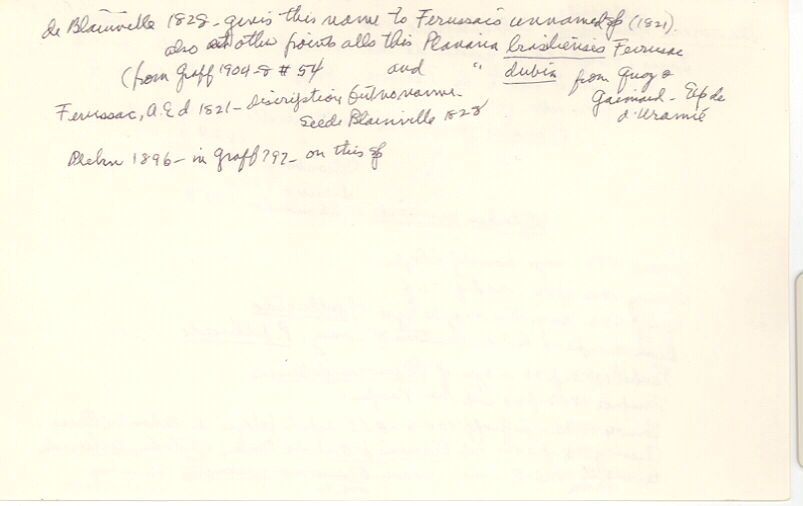 de Blainville 1828 - gives this name to Ferussac's unnamed sp (1821).
also at other points calls this Planaria brasiliensis Ferussac
(from Graff 1904-8 # 54 and " dubia from Quoy &
Gaimard - Exp de
d'Uranie
Ferussac, A.E.d 1821 - Discription but no name.
See de Blainville 1828
Plehn 1896 - in Graff ?97 - on this sp